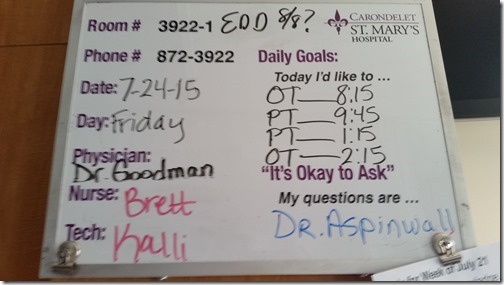 Room # 3922-1 EDD 8/8?
CARONDELET
ST. MARY'S
HOSPITAL
Phone # 872-3922
Daily Goals:
Today I'd like to ...
Date: 7-24-15
OT—8:15
PT—9:45
Day: Friday
PT—1:15
OT—2:15
Physician:
Dr. Goodman
"It's Okay to Ask"
Nurse: Brett
My questions are ...
Dr. Aspinwall
Tech: Kalli
for Week of July 21